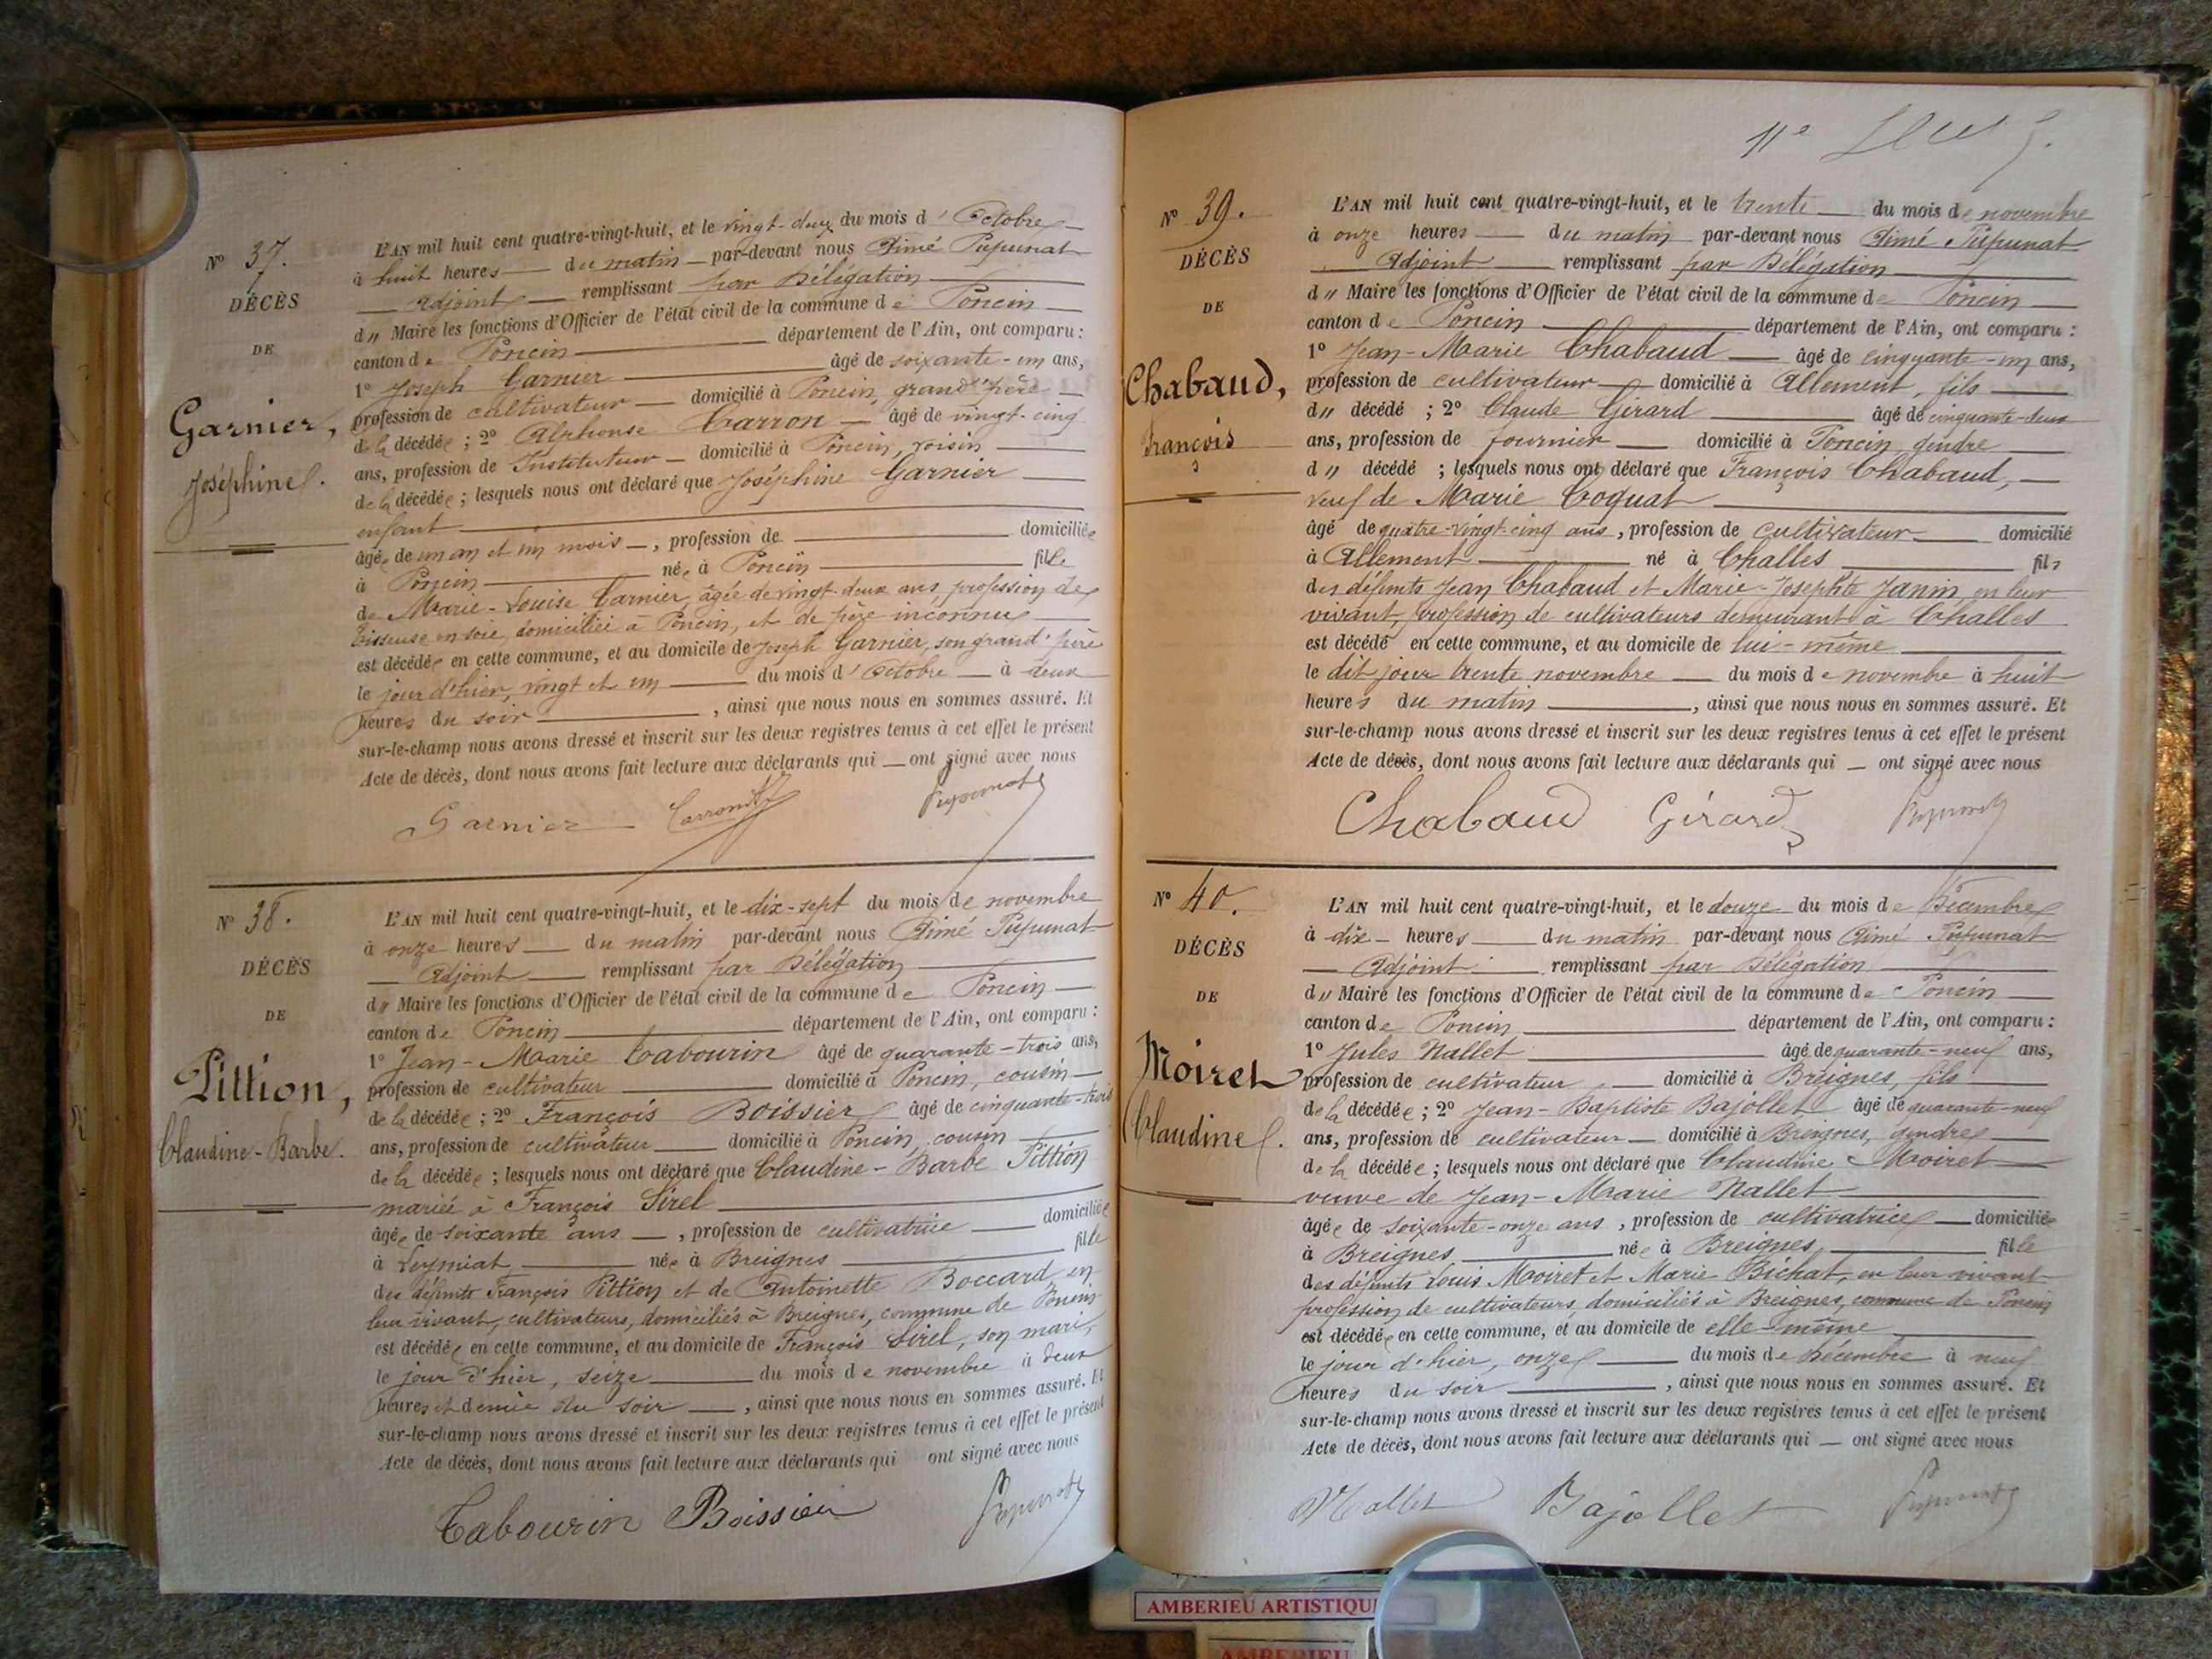 Nº 37.
DÉCÈS
DE
Garnier,
Joséphine.
L'AN mil huit cent quatre-vingt-huit, et le vingt-deux du mois d'Octobre
à huit heures du matin par-devant nous Aimé Pupunat
Adjoint remplissant par Délégation
d" Maire les fonctions d'Officier de l'état civil de la commune de Poncin
canton de Poncin département de l'Ain, ont comparu :
1º Joseph Garnier âgé de soixante-un ans,
profession de cultivateur domicilié à Poncin, grand'père
de la décédée ; 2º Alphonse Carron âgé de vingt-cinq
ans, profession de Instituteur domicilié à Poncin, voisin
de la décédée ; lesquels nous ont déclaré que Joséphine Garnier
enfant
âgée de un an et un mois, profession de domiciliée
à Poncin née à Poncin fille
de Marie-Louise Garnier, âgée de vingt-deux ans, profession de
tisseuse en soie, domiciliée à Poncin, et de père inconnu
est décédée en cette commune, et au domicile de Joseph Garnier, son grand'père
le jour d'hier, vingt et un du mois d'Octobre à deux
heures du soir, ainsi que nous nous en sommes assuré. Et
sur-le-champ nous avons dressé et inscrit sur les deux registres tenus à cet effet le présent
Acte de décès, dont nous avons fait lecture aux déclarants qui ont signé avec nous
Garnier Carron Pupunat
Nº 38.
DÉCÈS
DE
Pittion,
Claudine-Barbe.
L'AN mil huit cent quatre-vingt-huit, et le dix-sept du mois de novembre
à onze heures du matin par-devant nous Aimé Pupunat
Adjoint remplissant par Délégation
d" Maire les fonctions d'Officier de l'état civil de la commune de Poncin
canton de Poncin département de l'Ain, ont comparu :
1º Jean-Marie Tabourin âgé de quarante-trois ans,
profession de cultivateur domicilié à Poncin, cousin
de la décédée ; 2º François Boissier âgé de cinquante-trois
ans, profession de cultivateur domicilié à Poncin, cousin
de la décédée ; lesquels nous ont déclaré que Claudine-Barbe Pittion
mariée à François Sirel
âgée de soixante ans, profession de cultivatrice domiciliée
à Leymiat née à Breignes fille
des défunts François Pittion et de Antoinette Boccard, en
leur vivant, cultivateurs, domiciliés à Breignes, commune de Poncin
est décédée en cette commune, et au domicile de François Sirel, son mari,
le jour d'hier, seize du mois de novembre à deux
heures et demie du soir, ainsi que nous nous en sommes assuré. Et
sur-le-champ nous avons dressé et inscrit sur les deux registres tenus à cet effet le présent
Acte de décès, dont nous avons fait lecture aux déclarants qui ont signé avec nous
Tabourin Boissier Pupunat
11e
Nº 39.
DÉCÈS
DE
Chabaud,
François
L'AN mil huit cent quatre-vingt-huit, et le trente du mois de novembre
à onze heures du matin par-devant nous Aimé Pupunat
Adjoint remplissant par Délégation
d" Maire les fonctions d'Officier de l'état civil de la commune de Poncin
canton de Poncin département de l'Ain, ont comparu :
1º Jean-Marie Chabaud âgé de cinquante-un ans,
profession de cultivateur domicilié à Allement, fils
d" décédé ; 2º Claude Girard âgé de cinquante-deux
ans, profession de fournier domicilié à Poncin gendre
d" décédé ; lesquels nous ont déclaré que François Chabaud,
veuf de Marie Coquat
âgé de quatre-vingt-cinq ans, profession de cultivateur domicilié
à Allement né à Challes fils
des défunts Jean Chabaud et Marie-Josephte Janin, en leur
vivant, profession de cultivateurs demeurant à Challes
est décédé en cette commune, et au domicile de lui-même
le dit jour trente novembre du mois de novembre à huit
heures du matin, ainsi que nous nous en sommes assuré. Et
sur-le-champ nous avons dressé et inscrit sur les deux registres tenus à cet effet le présent
Acte de décès, dont nous avons fait lecture aux déclarants qui ont signé avec nous
Chabaud Girard Pupunat
Nº 40.
DÉCÈS
DE
Moiret
Claudine.
L'AN mil huit cent quatre-vingt-huit, et le douze du mois de Décembre
à dix heures du matin par-devant nous Aimé Pupunat
Adjoint remplissant par Délégation
d" Maire les fonctions d'Officier de l'état civil de la commune de Poncin
canton de Poncin département de l'Ain, ont comparu :
1º Jules Nallet âgé de quarante-neuf ans,
profession de cultivateur, domicilié à Breignes, fils
de la décédée ; 2º Jean-Baptiste Bajollet âgé de quarante-neuf
ans, profession de cultivateur domicilié à Breignes, gendre
de la décédée ; lesquels nous ont déclaré que Claudine Moiret
veuve de Jean-Marie Nallet
âgée de soixante-onze ans, profession de cultivatrice domiciliée
à Breignes née à Breignes, fille
des défunts Louis Moiret et Marie Bichat, en leur vivant
profession de cultivateurs, domiciliés à Breignes, commune de Poncin
est décédée en cette commune, et au domicile de elle-même
le jour d'hier, onze du mois de Décembre à neuf
heures du soir, ainsi que nous nous en sommes assuré. Et
sur-le-champ nous avons dressé et inscrit sur les deux registres tenus à cet effet le présent
Acte de décès, dont nous avons fait lecture aux déclarants qui ont signé avec nous
Nallet Bajollet Pupunat
AMBERIEU ARTISTIQU
AMBERIEU